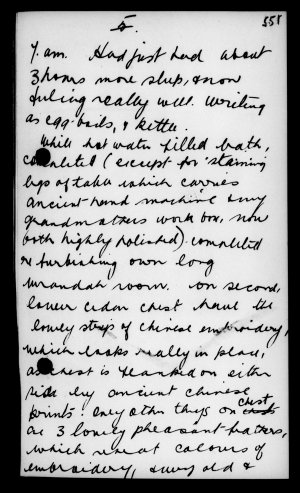 5.
558
7 am. Had just had about
3 hours more sleep, & now
feeling really well. Writing
as egg boils, & kettle.
While hot water filled bath,
completed (except for staining
legs of table which carries
ancient hand machine & my
grandmothers work box, now
both highly polished) completed
re furbishing own long
verandah room. On second,
lower cedar chest have the
lovely strips of Chinese embroidery,
which looks really in place,
as chest is flanked on either
side by ancient Chinese
prints. Only other things on chest
are 3 lovely pheasant feathers,
which repeat colours of
embroidery, & very old &